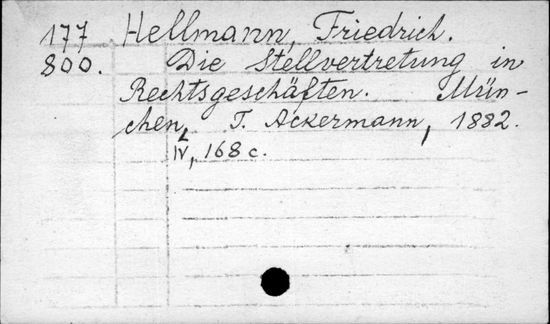 177 Hellmann, Friedrich.
800. Die Stellvertretung in
Rechtsgeschäften. Mün-
chen, T. Ackermann, 1882.
IV, 168 c.